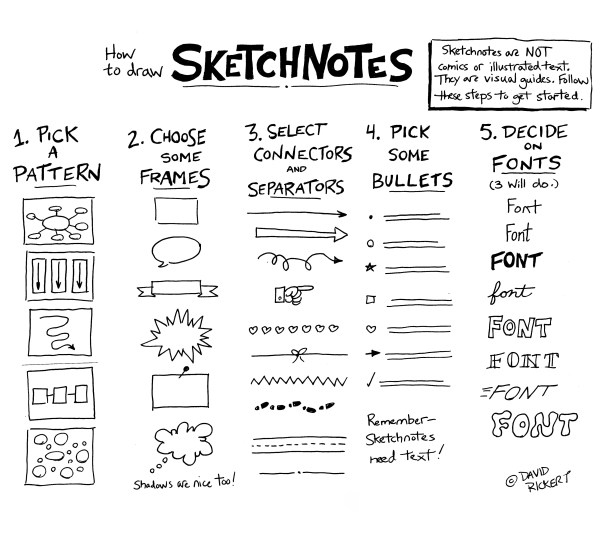 How
to draw
SKETCHNOTES
Sketchnotes are NOT
comics or illustrated text.
They are visual guides. Follow
these steps to get started.
1. PICK
A
PATTERN
2. CHOOSE
SOME
FRAMES
Shadows are nice too!
3. SELECT
CONNECTORS
AND
SEPARATORS
4. PICK
SOME
BULLETS
Remember-
Sketchnotes
need text!
5. DECIDE
ON
FONTS
(3 will do.)
Font
Font
FONT
font
FONT
FONT
FONT
FONT
© DAVID
RICKERT